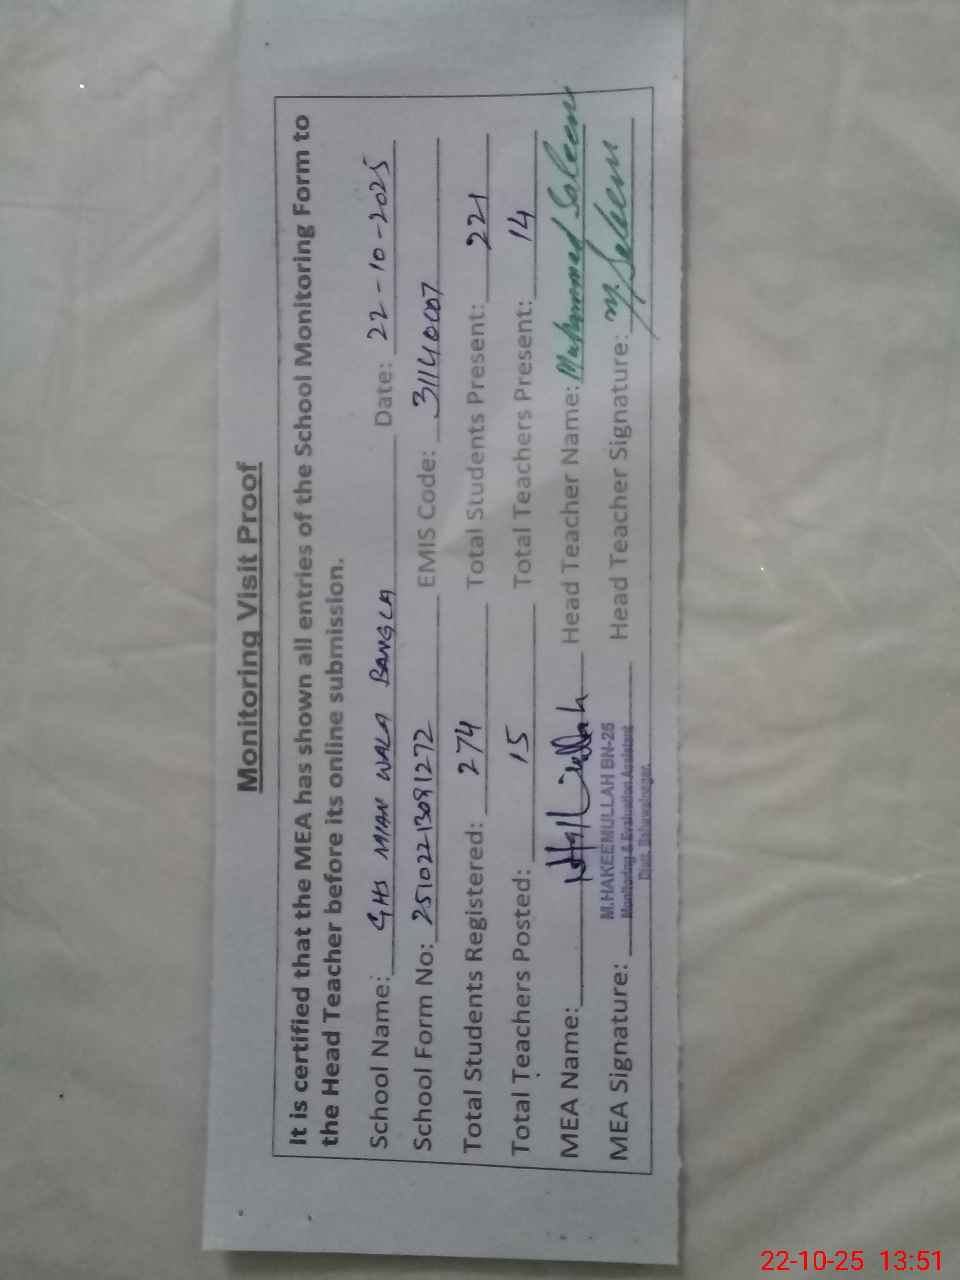 Monitoring Visit Proof
It is certified that the MEA has shown all entries of the School Monitoring Form to
the Head Teacher before its online submission.
School Name: GHS MIAN WALA BANGLA Date: 22-10-2025
School Form No: 25102213091272 EMIS Code: 31140007
Total Students Registered: 274 Total Students Present: 221
Total Teachers Posted: 15 Total Teachers Present: 14
MEA Name: Head Teacher Name: Muhammad Saleem
MEA Signature: M.HAKEEMULLAH BN-25 Head Teacher Signature: M. Saleem
Monitoring & Evaluation Assistant
Distt. Bahawalnagar.
22-10-25 13:51